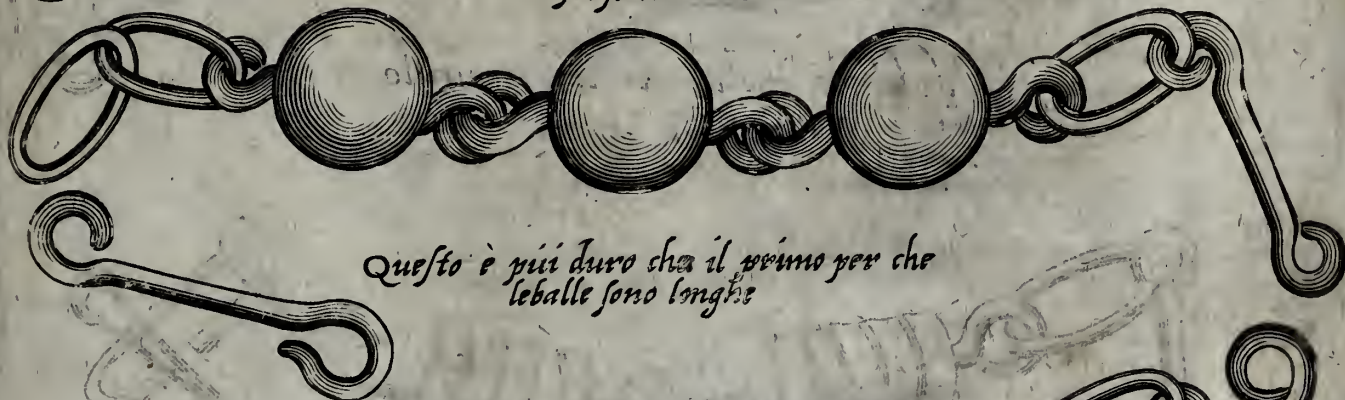 Queſto è piu duro cha il primo per che
leballe ſono longhe